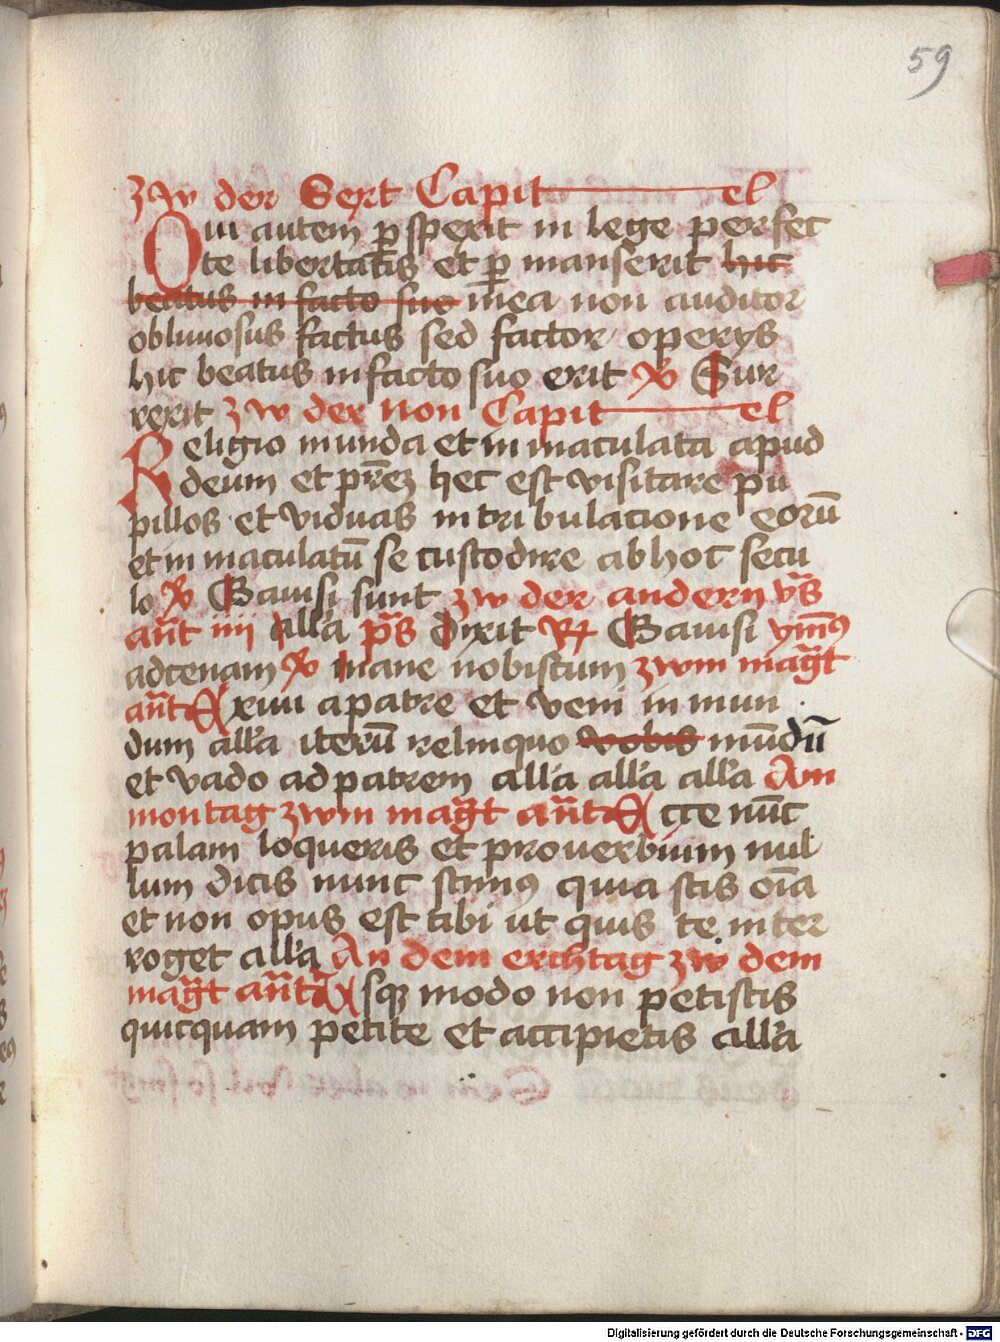 59
zw der Sext Capit el
Qui autem ꝑspexit in lege perfec
te libertatis et ꝑ manserit hic
beatus in facto suo in ea non auditor
obliuiosus factus sed factor operys
hic beatus in facto suo erit ℣ Sur
rexit zw der Non Capit el
Religio munda et inmaculata apud
deum et p̄rez hec est visitare pu
pillos et viduas in tri bulacione eorū
et in maculatū se custodire ab hoc secu
lo ℣ Gauisi sunt zw der andern v̄s
an̄t iiii all̄a p̄s dixit ℟ Gauisi ym̄9
ad cenam ℣ mane nobiscum zwm mag̃t
an̄t Exiui a patre et veni in mun
dum all̄a iterū relinquo vobis mūdū
et vado ad patrem all̄a all̄a all̄a Am
montag zwm mag̃t an̄t Ecce nūc
palam loqueris et prouerbium nul
lum dicis nunc scim9 quia scis oīa
et non opus est tibi ut quis te inter
roget all̄a An dem erchtag zw dem
mag̃t an̄t Vsqꝫ modo non petistis
quicquam petite et accipietis all̄a
Digitalisierung gefördert durch die Deutsche Forschungsgemeinschaft - DFG